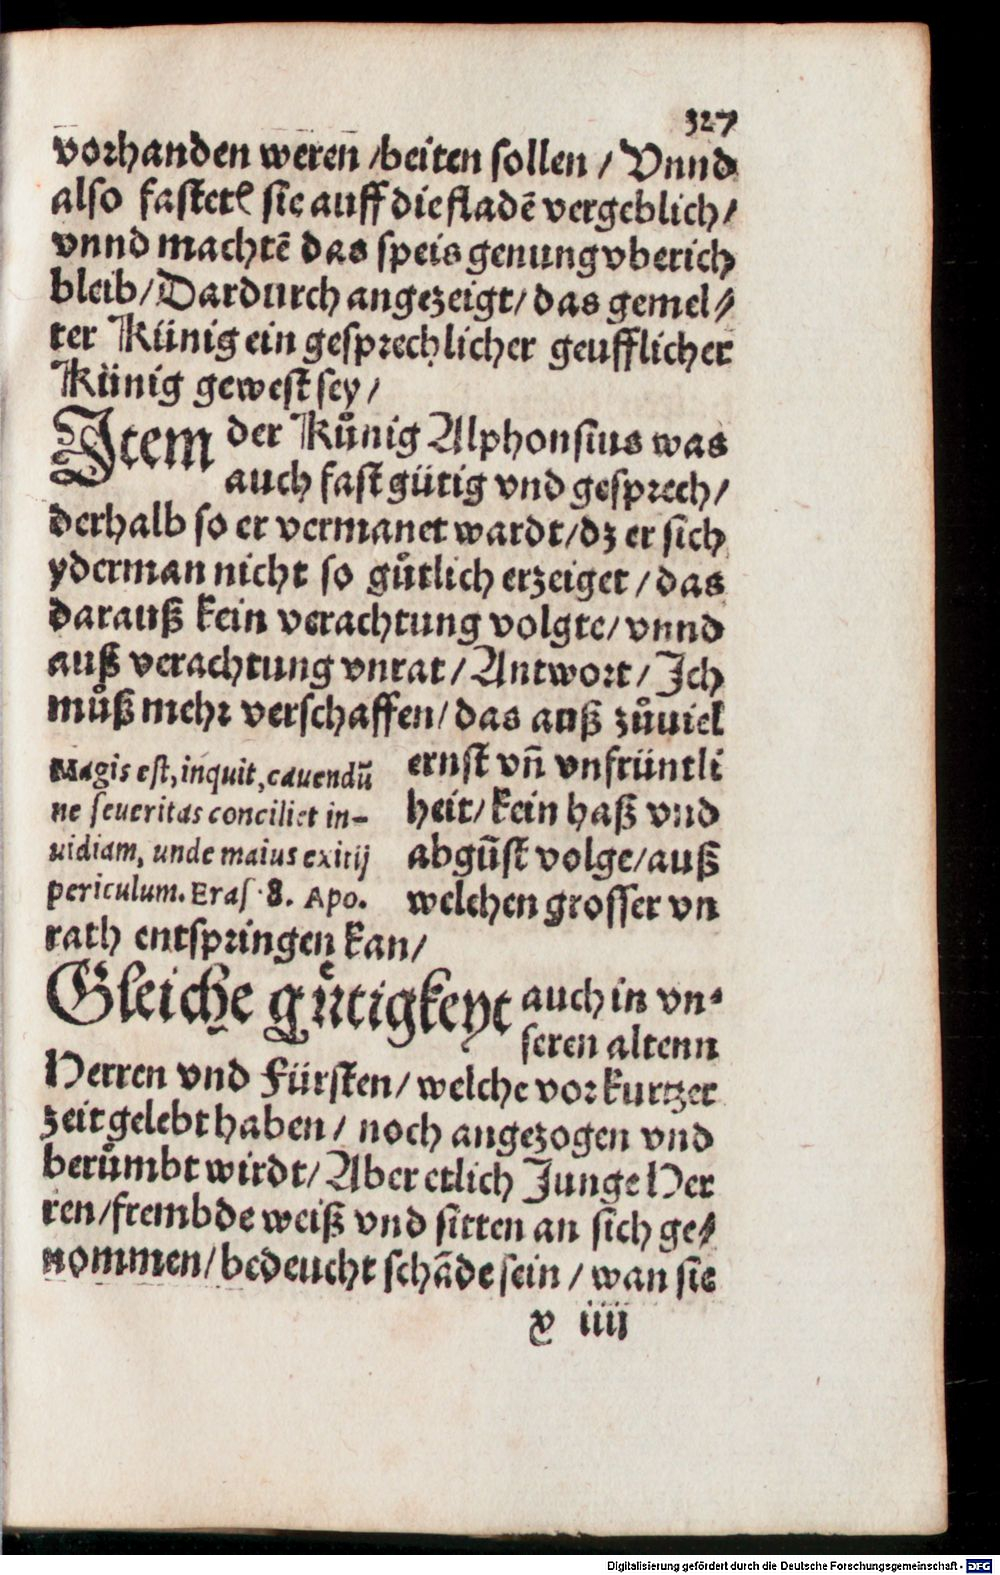 327
vorhanden weren /beiten sollen / Vnnd
also fasteten sie auff die fladē vergeblich/
vnnd machtē das speis genung vberich
bleib/Dardurch angezeigt/ das gemel⸗
ter Künig ein gesprechlicher geufflicher
Künig gewest sey /
Item der Kůnig Alphonsius was
auch fast gütig vnd gesprech /
derhalb so er vermanet wardt/dz er sich
yderman nicht so gůtlich erzeiget / das
darauß kein verachtung volgte/ vnnd
auß verachtung vnrat / Antwort / Ich
můß mehr verschaffen/ das auß zůuiel
ernst vñ vnfrüntli
heit/ kein haß vnd
abgūst volge/auß
welchen grosser vn
Magis est, inquit, cauendū
ne seueritas conciliet in-
uidiam, unde maius exitij
periculum. Eras. 8. Apo.
rath entspringen kan/
Gleiche gůtigkeyt auch in vn⸗
seren altenn
Herren vnd Fürsten/ welche vor kurtzer
zeit gelebt haben / noch angezogen vnd
berůmbt wirdt/ Aber etlich Junge Her
ren/frembde weiß vnd sitten an sich ge⸗
nommen/bedeucht schāde sein / wan sie
x iiij
Digitalisierung gefördert durch die Deutsche Forschungsgemeinschaft - DFG